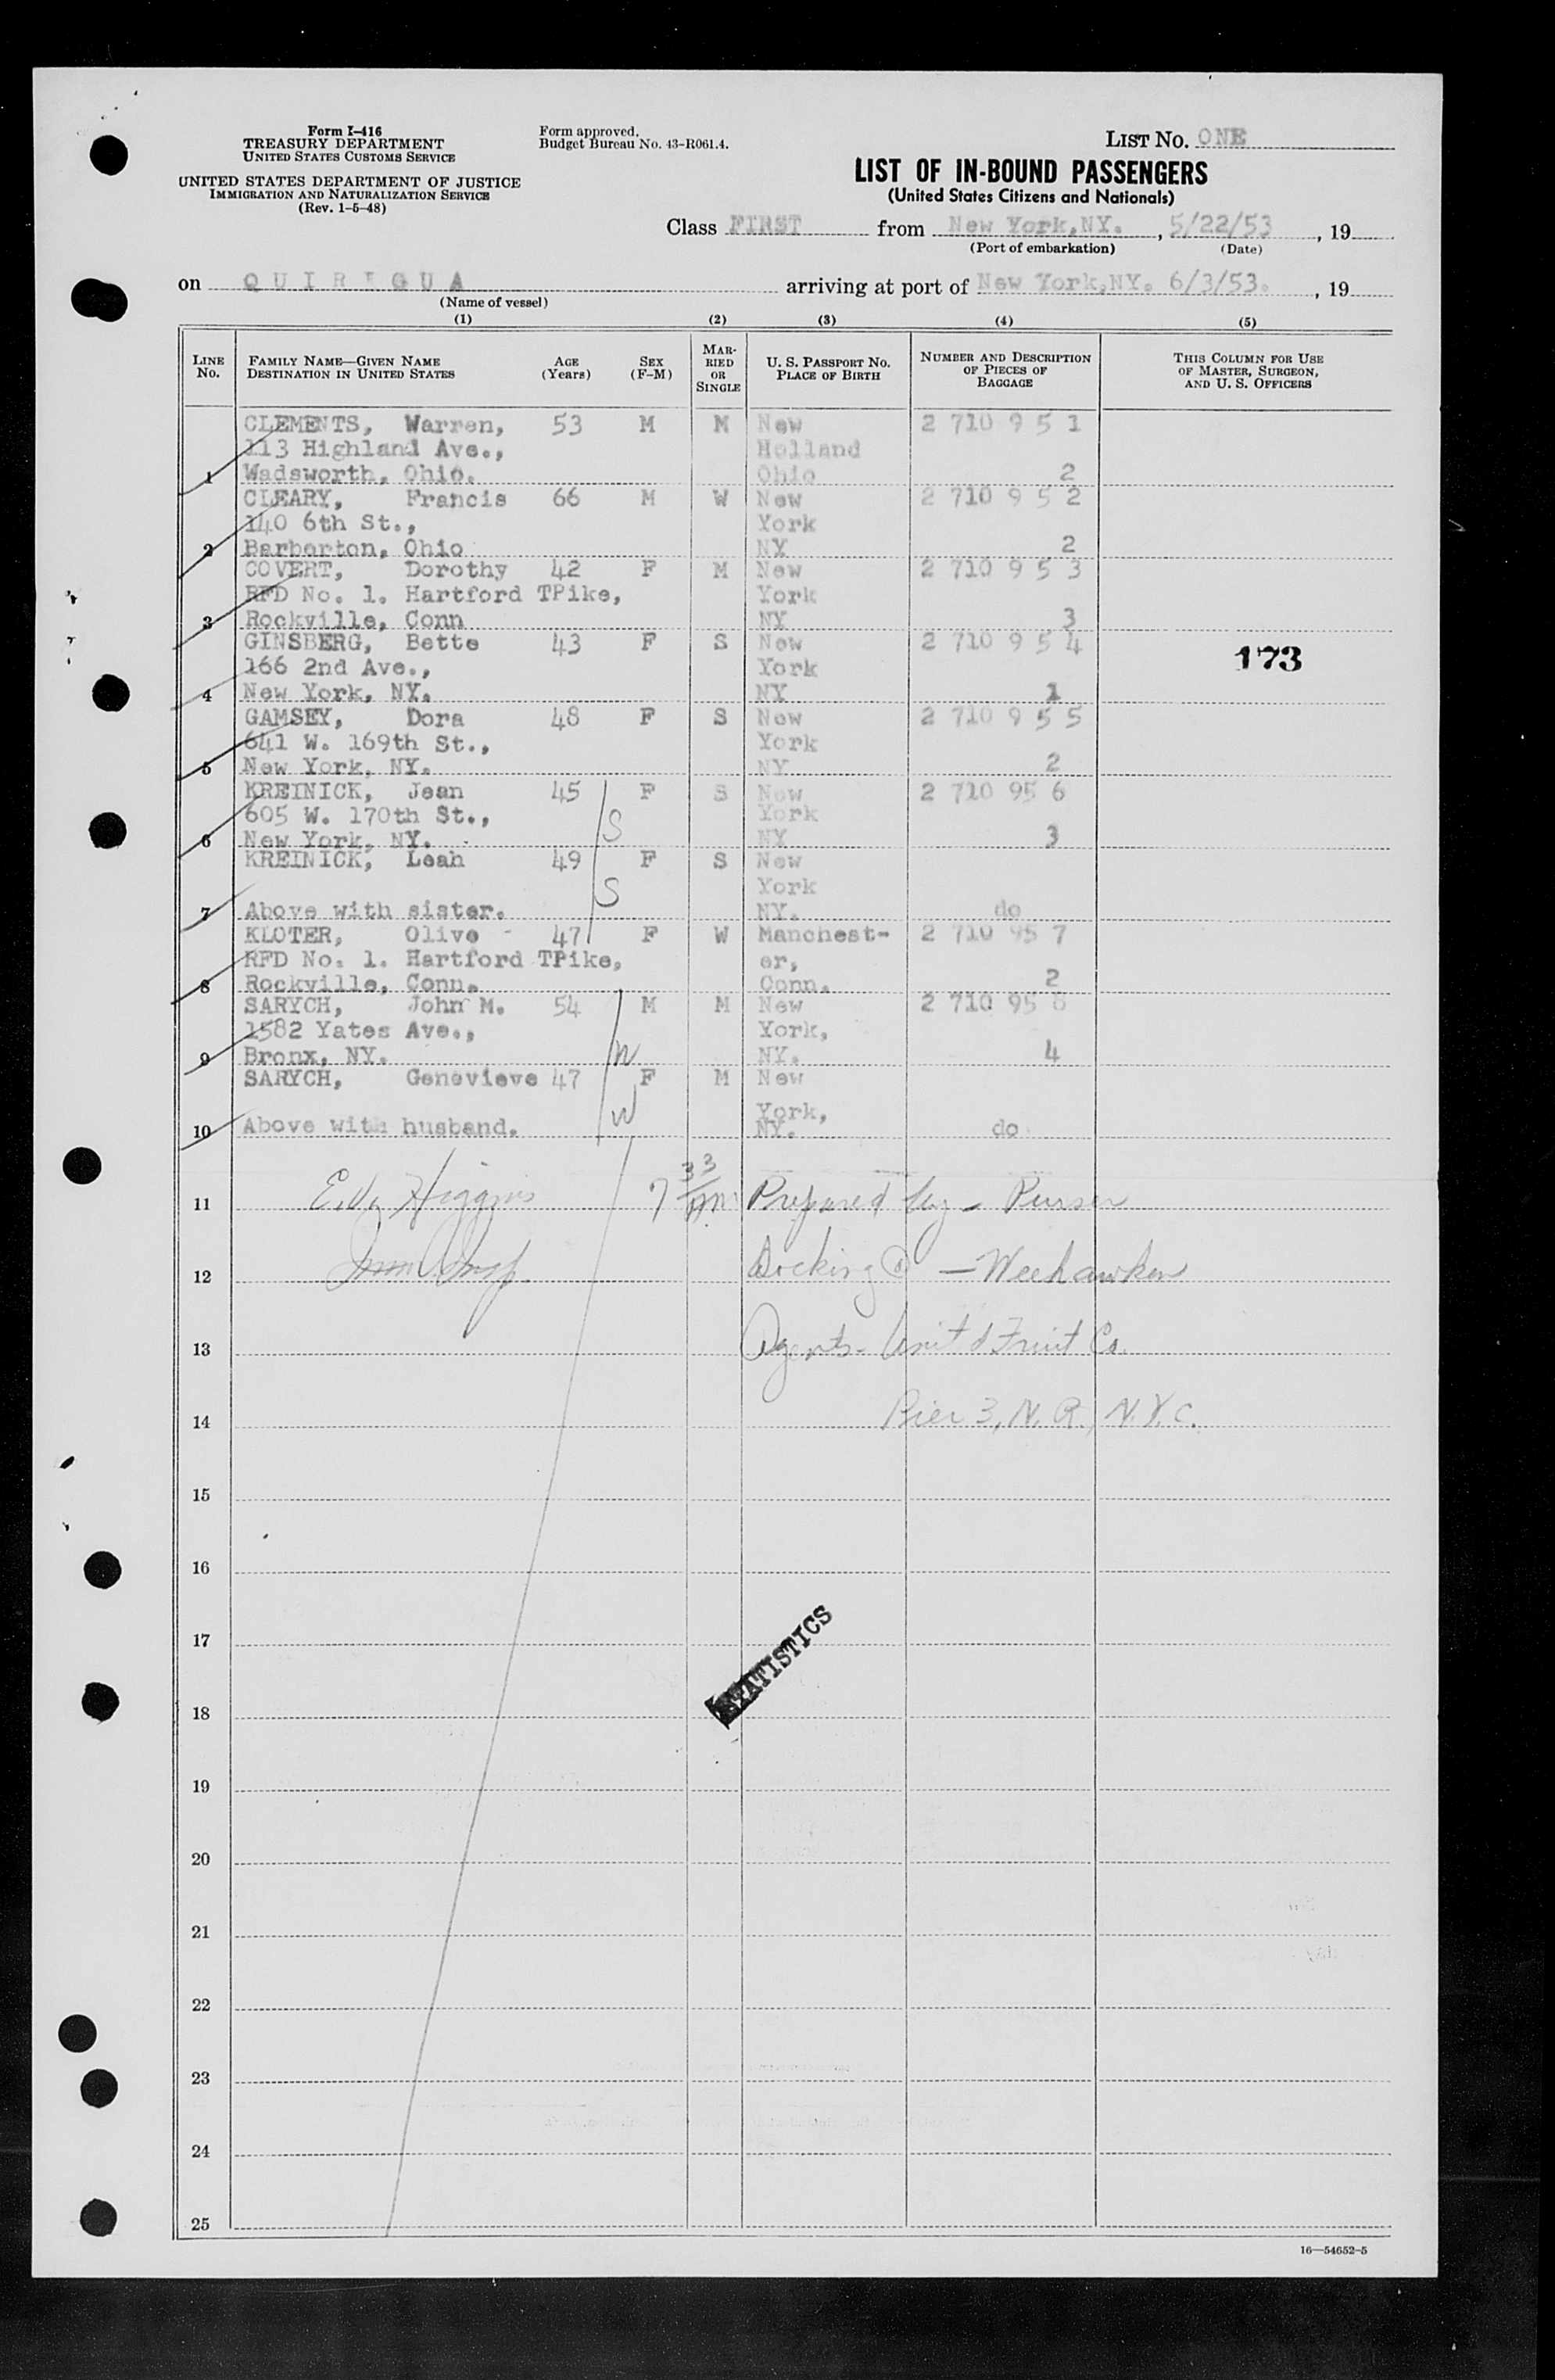 Form I-416
TREASURY DEPARTMENT
UNITED STATES CUSTOMS SERVICE
UNITED STATES DEPARTMENT OF JUSTICE
IMMIGRATION AND NATURALIZATION SERVICE
(Rev. 1-5-48)
Form approved.
Budget Bureau No. 43-R061.4.
LIST No. ONE
LIST OF IN-BOUND PASSENGERS
(United States Citizens and Nationals)
Class FIRST from New York,NY. , 5/22/53 , 19
(Port of embarkation) (Date)
on QUIRIGUA arriving at port of New York,NY. 6/3/53. , 19
(Name of vessel)
(1) (2) (3) (4) (5)
LINE No. FAMILY NAME—GIVEN NAME DESTINATION IN UNITED STATES AGE (Years) SEX (F-M) MARRIED OR SINGLE U. S. PASSPORT NO. PLACE OF BIRTH NUMBER AND DESCRIPTION OF PIECES OF BAGGAGE THIS COLUMN FOR USE OF MASTER, SURGEON, AND U. S. OFFICERS
CLEMENTS, Warren, 53 M M New 2 710 9 5 1
113 Highland Ave., Holland
1 Wadsworth, Ohio. Ohio 2
CLEARY, Francis 66 M W New 2 710 9 5 2
140 6th St., York
2 Barberton, Ohio NY 2
COVERT, Dorothy 42 F M New 2 710 9 5 3
RFD No. 1. Hartford TPike, York
3 Rockville, Conn NY 3
GINSBERG, Bette 43 F S New 2 710 9 5 4
166 2nd Ave., York 173
4 New York, NY. NY 1
GAMSEY, Dora 48 F S New 2 710 9 5 5
641 W. 169th St., York
5 New York, NY. NY 2
KREINICK, Jean 45 F S New 2 710 95 6
605 W. 170th St., S York
6 New York, NY. NY 3
KREINICK, Leah 49 F S New
S York
7 Above with sister. NY. do
KLOTER, Olive - 47 F W Manchest- 2 710 95 7
RFD No. 1. Hartford TPike, er,
8 Rockville, Conn. Conn. 2
SARYCH, John M. 54 M M New 2 710 95 8
1582 Yates Ave., York,
9 Bronx, NY. W NY. 4
SARYCH, Genevieve 47 F M New
W York,
10 Above with husband. NY. do
11 Higgins 7 33/AM Prepared by - Purser
12 Docking @ — Weehawken
13 Agents - Unit'd Fruit Co.
14 Pier 3, N. R. N.Y.C.
15
16
17
STATISTICS
18
19
20
21
22
23
24
25
16—54652-5